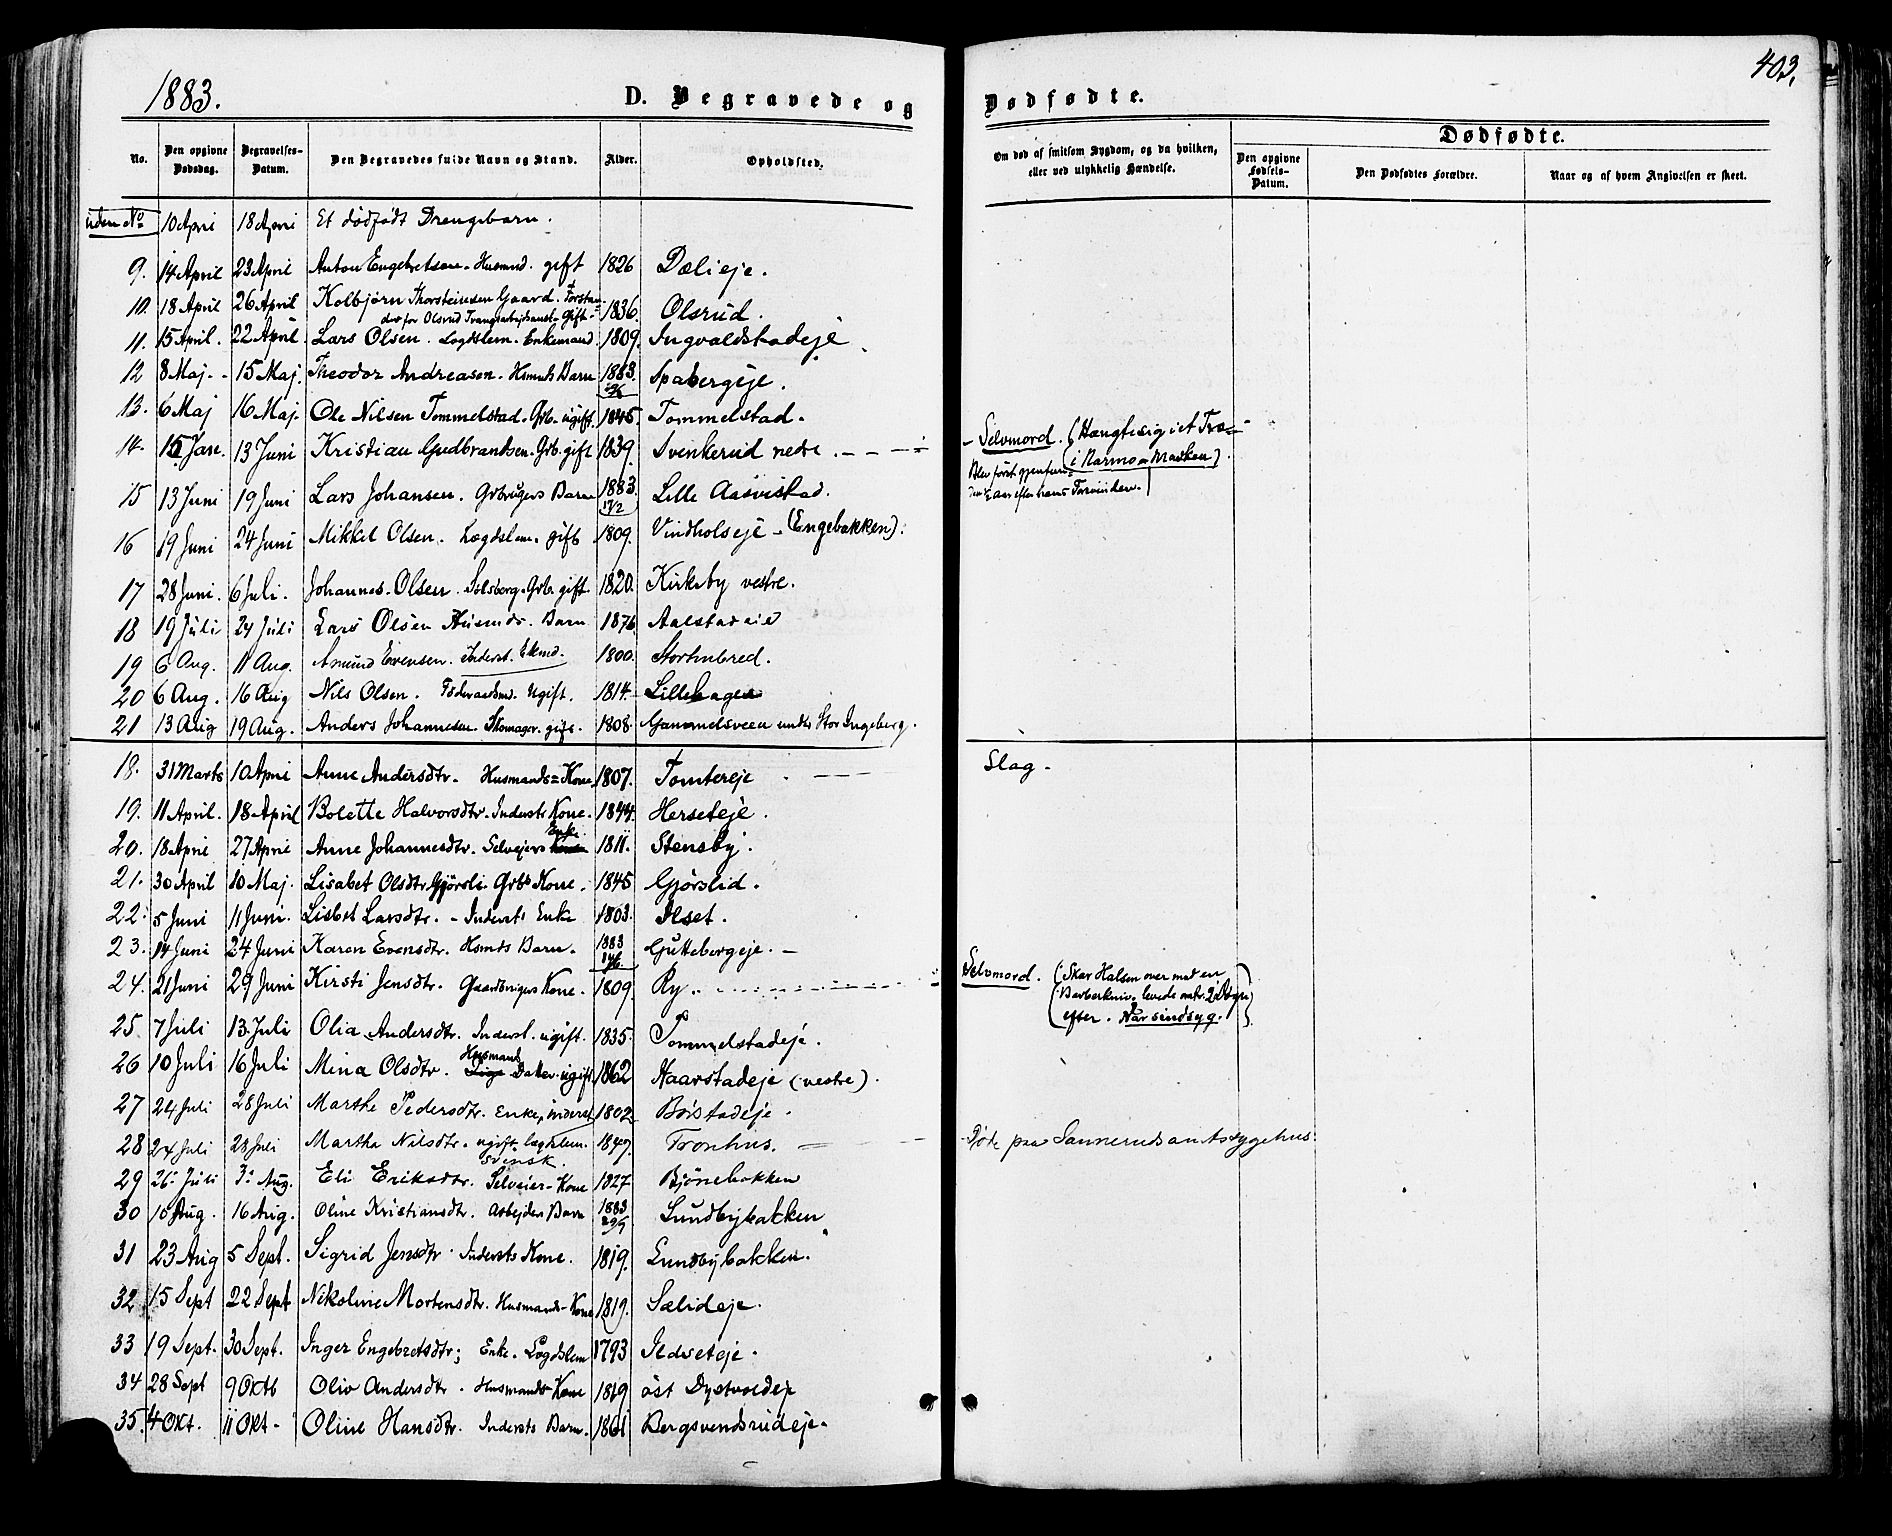 1883.
403.
D. Begravede og Dødfødte.
No. Den opgivne Dødsdag. Begravelses-Datum. Den Begravedes fulde Navn og Stand. Alder. Opholdsted. Om død af smitsom Sygdom, og da hvilken, eller ved ulykkelig Hændelse.
Dødfødte.
Den opgivne Fødsels-Datum. Den Dødfødtes Forældre. Naar og af hvem Angivelsen er skeet.
uden No 10 April 18 April Et dödfödt Drengebarn.
9. 14 April 23 April Anton Engebretsen. Husmd. gift 1826 Dælieje.
10. 18 April 26 April Kolbjørn Thorsteinsen Gaard. Forstan-
der for Olsrud Tvangsarbejdsanst. Gift 1836. Olsrud.
11. 15 April. 22 April. Lars Olsen. Lægdslem. Enkemand. 1809. Ingvoldstadeje
12 8 Maj. 15 Maj. Theodor Andreasen. Hsmds Barn 1883. Spabergeje.
13. 6 Maj 16 Maj. Ole Nilsen Tommelstad. Grb. ugift. 1845 Tommelstad.
14. 15 Jan. 13 Juni Kristian Gudbrandsen. Grb. gift 1839. Svenkerud nedre. - Selvmord. (Hængte sig i et Træ
i Narmo Marken).
Blev först gjenfun-
den ½ aar efter hans Forsvinden.
15 13 Juni 19 Juni Lars Johansen. Grbrugers Barn 1883. Lille Aasvistad.
16 19 Juni 24 Juni Mikkel Olsen. Lægdslem. gift 1809. Vindholseje - (Engebakken).
17 28 Juni. 6 Juli. Johannes Olsen. Solsberg. Grb. gift. 1820. Kirkeby vestre.
18 19 Juli 24 Juli Lars Olsen Husmds. Barn 1876 Aalstadeie
19 6 Aug. 11 Aug. Amund Evensen. Inderst. Ekmd. 1800. Storhubred.
20 6 Aug. 16 Aug Nils Olsen. Föderaadsmd. Ugift. 1814. Lillehagen
21 13 Aug 19 Aug. Anders Johannesen. Skomager. gift. 1808. Gammelsveen under Stor Ingeberg.
18. 31 Marts 10 April Anne Andersdtr. Husmands=Kone 1807. Tomtereje Slag.
19. 11 April. 18 April Bolette Halvorsdtr. Indersts Kone. 1844. Herseteje.
20. 18 April 27 April Anne Johannesdtr. Selvejers Enke. 1811. Stensby.
21. 30 April 10 Maj. Lisabet Olsdtr Gjörsli. Grbs Kone. 1845 Gjörslid.
22. 5 Juni 11 Juni. Lisbet Larsdtr. - Indersts Enke 1803. Ilset.
23. 14 Juni 24 Juni Karen Evensdtr. Hsmds Barn. 1883 Gutteborgeje.
24. 21 Juni 29 Juni Kirsti Jensdtr. Gaardbrugers Kone. 1809. Ry. Selvmord. (Skar Halsen over med en
Barberkniv, levede omtr. 2 Døgn
efter. Var sindsyg.)
25. 7 Juli 13. Juli Olia Andersdtr. Inderst. ugift. 1835. Tommelstadeje.
26 10 Juli 16 Juli Mina Olsdtr. Husmand Datter. ugift 1862 Haarstadeje (vestre).
27 24 Juli 28 Juli Marthe Pedersdtr. Enke, inderst 1802. Börstadeje.
28 24 Juli 28 Juli Martha Nilsdtr. ugift. lægdslem. svensk. 1847. Tronhus. Döde paa Sannerud amtssygehus.
29 26. Juli 3. Aug. Eli Eriksdtr. Selveier-Kone 1827 Bjönebakken
30 10 Aug. 16 Aug. Oline Kristiansdtr. Arbejder Barn 1883 Lundbybakken
31 23 Aug 5 Sept. Sigrid Jensdtr. Indersts Kone. 1819. Lundbybakken.
32 15 Sept 22 Sept Nikoline Mortensdtr. Husmands-Kone 1819. Sælideje.
33 19 Sept. 30 Sept. Inger Engebretsdtr; Enke. Lægdslem 1793 Ildseteje.
34 28 Sept 9 Oktb Oliv Andersdtr. Husmands Kone 1819 öst Dystvoldeje
35. 4 Okt. 11 Okt - Oline Hansdtr. Indersts Barn. 1861 Bergsvendsrudeje.